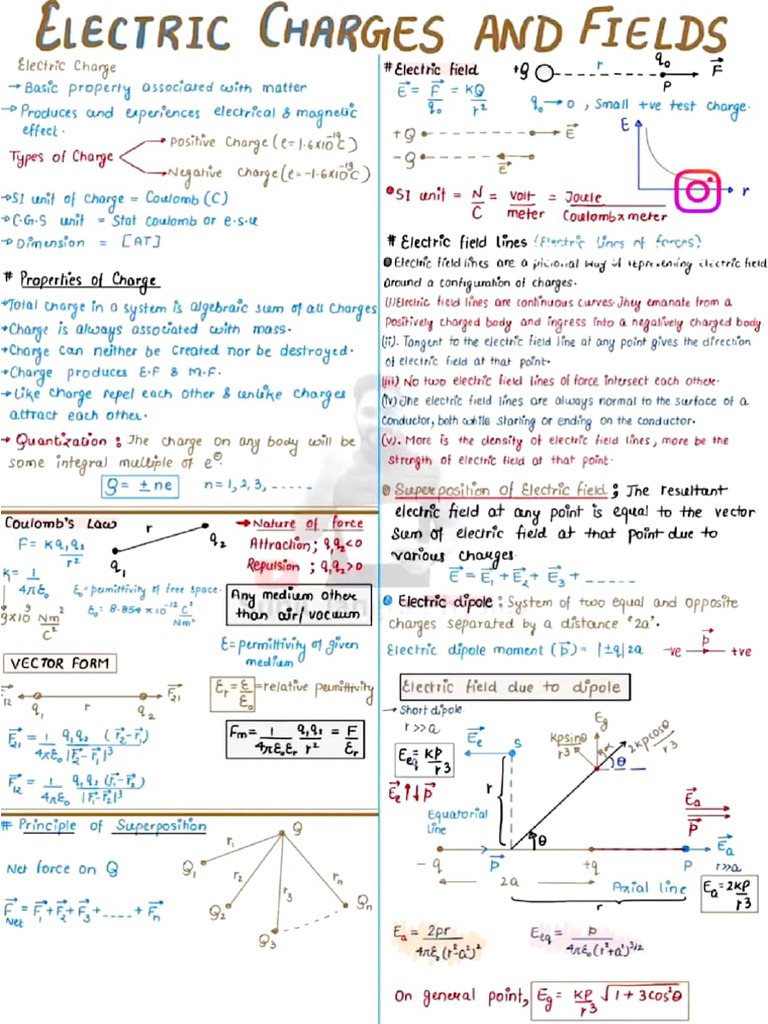 ELECTRIC CHARGES AND FIELDS
Electric Charge
→ Basic property associated with matter
→ Produces and experiences electrical & magnetic
effect.
Types of Charge
Positive Charge (e = 1.6×10⁻¹⁹C)
Negative Charge (e = -1.6×10⁻¹⁹C)
→ SI unit of Charge = Coulomb (C)
→ C.G.S unit = Stat coulomb or e.s.u
→ Dimension = [AT]
# Properties of Charge
→ Total charge in a system is algebraic sum of all Charges
→ Charge is always associated with mass.
→ Charge can neither be created nor be destroyed.
→ Charge produces E.F & M.F.
→ Like charge repel each other & unlike charges
attract each other.
→ Quantization : The charge on any body will be
some integral multiple of e⊖.
Q = ± ne n = 1, 2, 3, -----
Coulomb's Law
F = Kq₁q₂/r²
r
q₁
q₂
K = 1/4πε₀
9×10⁹ Nm²/C²
ε₀ = permittivity of free space.
ε₀ = 8.854×10⁻¹² C²/Nm²
→ Nature of force
Attraction ; q₁q₂ < 0
Repulsion ; q₁q₂ > 0
Any medium other
than air/vacuum
ε = permittivity of given
medium
εr = ε/ε₀ = relative permittivity
Fm = 1/4πε₀εr q₁q₂/r² = F/εr
VECTOR FORM
F⃗₁₂ q₁ r q₂ F⃗₂₁
F⃗₂₁ = 1/4πε₀ q₁q₂ (r⃗₂-r⃗₁)/|r⃗₂-r⃗₁|³
F⃗₁₂ = 1/4πε₀ q₁q₂ (r⃗₁-r⃗₂)/|r⃗₁-r⃗₂|³
# Principle of Superposition
Net force on Q
F⃗Net = F⃗₁+F⃗₂+F⃗₃+----+F⃗n
Q
Q₁ r₁
Q₂ r₂
Q₃ r₃
Qn rn
# Electric field
+Q r q₀ P F⃗
E⃗ = F⃗/q₀ = KQ/r²
q₀→0 , Small +ve test charge.
+Q E⃗
-Q E⃗
E
r
SI unit = N/C = volt/meter = Joule/Coulomb×meter
# Electric field lines (Electric lines of forces)
Electric field lines are a pictorial way of representing electric field
around a configuration of charges.
(i) Electric field lines are continuous curves. They emanate from a
positively charged body and ingress into a negatively charged body.
(ii). Tangent to the electric field line at any point gives the direction
of electric field at that point.
(iii) No two electric field lines of force intersect each other.
(iv) The electric field lines are always normal to the surface of a
conductor, both while starting or ending on the conductor.
(v). More is the density of electric field lines, more be the
strength of electric field at that point.
Superposition of Electric field ; The resultant
electric field at any point is equal to the vector
sum of electric field at that point due to
various charges.
E⃗ = E⃗₁ + E⃗₂ + E⃗₃ + -----
Electric dipole : System of two equal and opposite
charges separated by a distance '2a'.
Electric dipole moment (p⃗) = |±q|2a -ve p⃗ +ve
Electric field due to dipole
→ Short dipole
r>>a
Eeq = KP/r³
E⃗e ↑↓ p⃗
E⃗e
S
r
Equatorial
Line
Eg
Kpsinθ/r³
α
2kpcosθ/r³
θ
E⃗a
p⃗
θ
-q p⃗ +q P E⃗a
2a
r
Axial line
r>>a
Ea = 2KP/r³
Ea = 2pr/4πε₀(r²-a²)²
Eeq = p/4πε₀(r²+a²)³/²
On general point, Eg = KP/r³ √1+3cos²θ